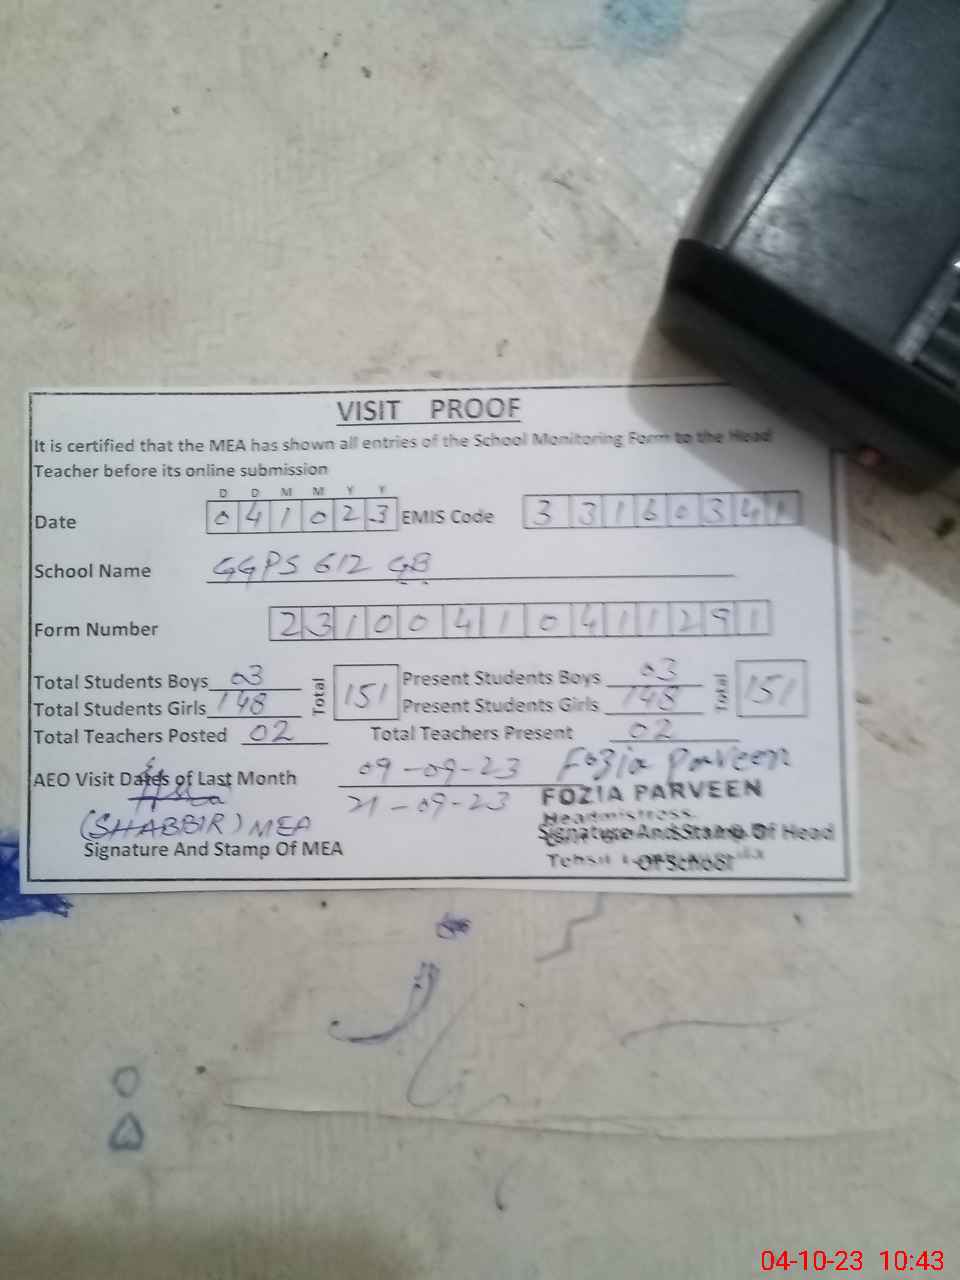 VISIT PROOF
It is certified that the MEA has shown all entries of the School Monitoring Form to the Head
Teacher before its online submission
D D M M Y Y
Date 041023 EMIS Code 33160341
School Name GGPS 612 GB
Form Number 23100410411291
Total Students Boys 03 Total 151 Present Students Boys 03 Total 151
Total Students Girls 148 Present Students Girls 148
Total Teachers Posted 02 Total Teachers Present 02
AEO Visit Dates of Last Month 09-09-23 Fozia Parveen
21-09-23 FOZIA PARVEEN
Headmistress
(SHABBIR) MEA Signature And Stamp Of Head
Signature And Stamp Of MEA Tehsil Of School
04-10-23 10:43